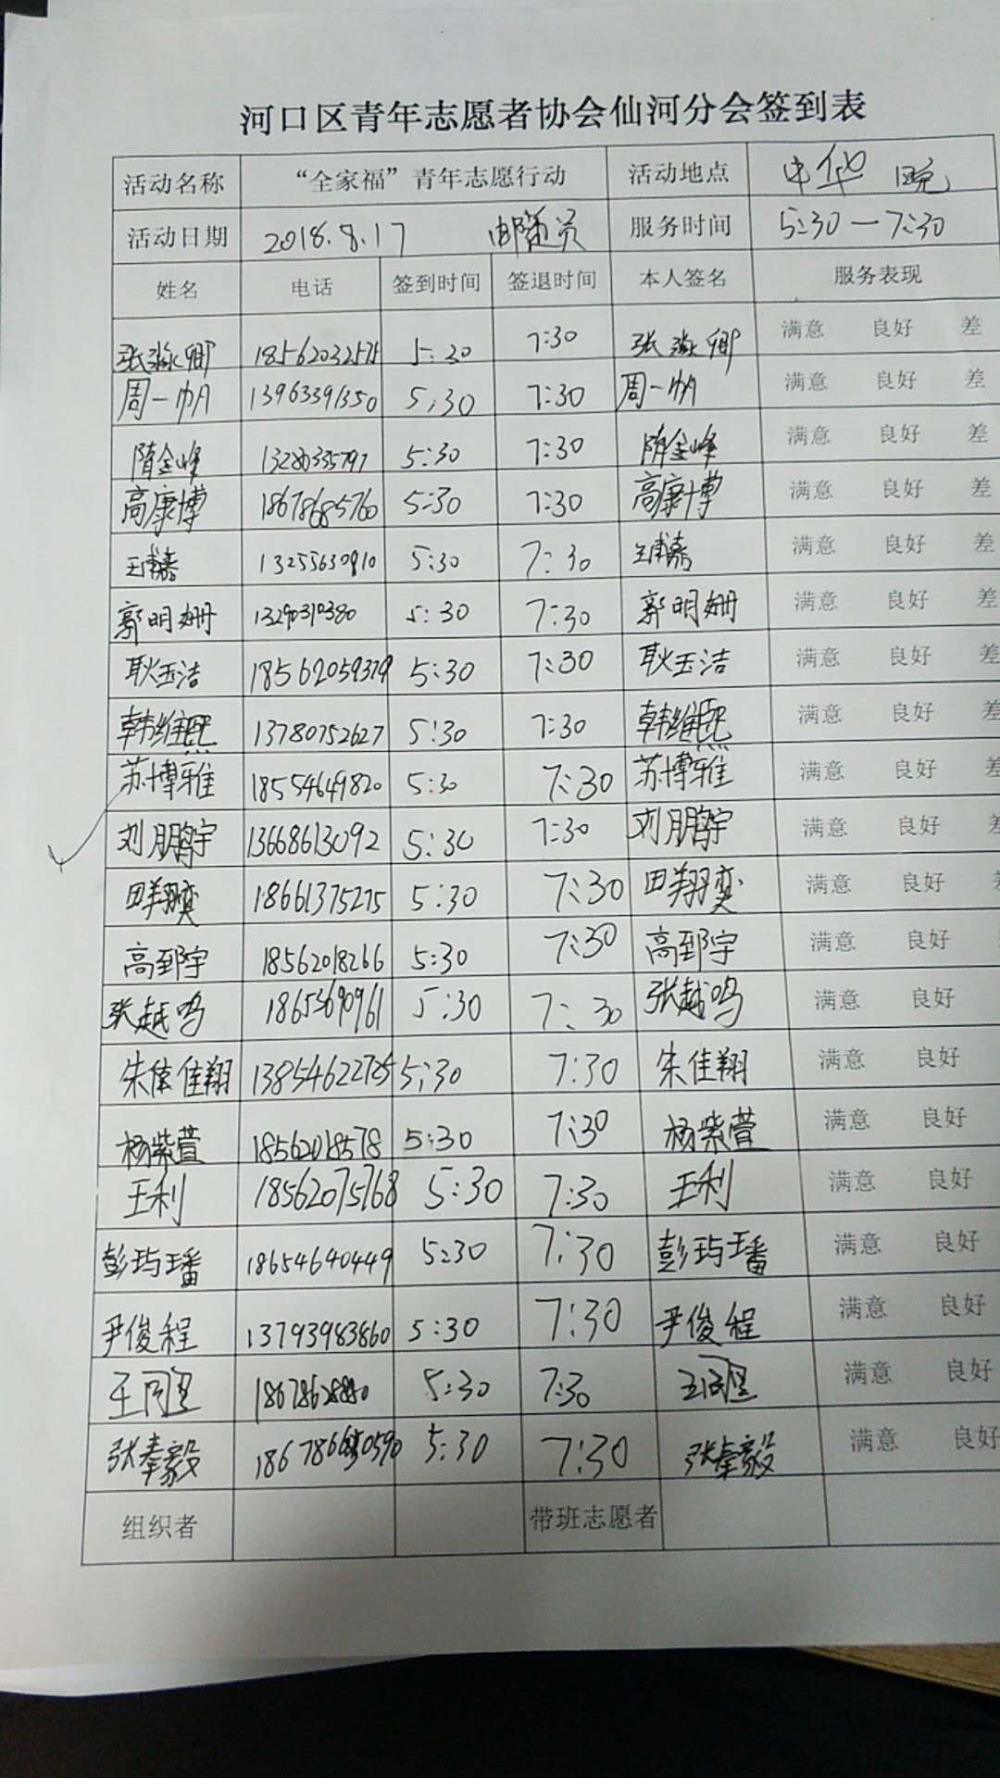 河口区青年志愿者协会仙河分会签到表
活动名称 “全家福”青年志愿行动 活动地点 中华
活动日期 2018.8.17 服务时间 5:30—7:30
姓名 电话 签到时间 签退时间 本人签名 服务表现
张淼卿 18562032575 5:30 7:30 张淼卿 满意 良好 差
周一帆 13963391350 5:30 7:30 周一帆 满意 良好 差
隋金峰 13280335797 5:30 7:30 隋金峰 满意 良好 差
高康博 18678685760 5:30 7:30 高康博 满意 良好 差
13255630910 5:30 7:30 满意 良好 差
郭明姗 13290310380 5:30 7:30 郭明姗 满意 良好 差
耿玉洁 18562059379 5:30 7:30 耿玉洁 满意 良好 差
韩维熙 13780752627 5:30 7:30 韩维熙 满意 良好 差
苏博雅 18554649820 5:30 7:30 苏博雅 满意 良好 差
刘鹏宇 13668613092 5:30 7:30 刘鹏宇 满意 良好 差
田翔奕 18661375275 5:30 7:30 田翔奕 满意 良好
高郅宇 18562018266 5:30 7:30 高郅宇 满意 良好
张越鸣 18653690961 5:30 7:30 张越鸣 满意 良好
朱佳翔 13854622725 5:30 7:30 朱佳翔 满意 良好
杨紫萱 18562018578 5:30 7:30 杨紫萱 满意 良好
王利 18562075768 5:30 7:30 王利 满意 良好
彭玙璠 18654640449 5:30 7:30 彭玙璠 满意 良好
尹俊程 13793983860 5:30 7:30 尹俊程 满意 良好
5:30 7:30 满意 良好
张奉毅 5:30 7:30 张奉毅 满意 良好
组织者 带班志愿者